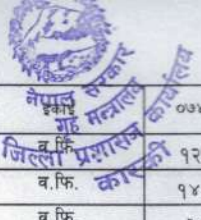 नेपाल सरकार
गृह मन्त्रालय
जिल्ला प्रशासन कार्यालय
कास्की
इकाई ०७
व.फि. १२
व.फि. १४
व.फि.